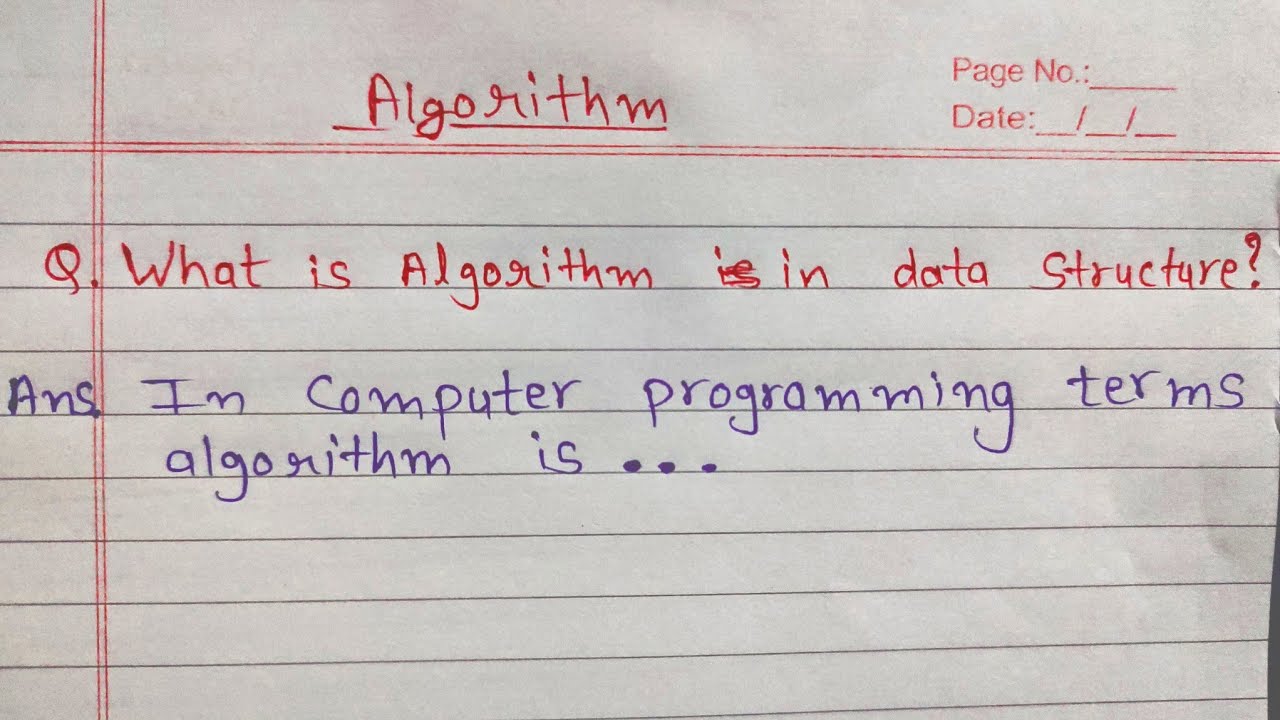 Algorithm
Page No.:_____
Date:__/__/__
Q. What is Algorithm is in data structure?
Ans. In Computer programming terms
algorithm is ...